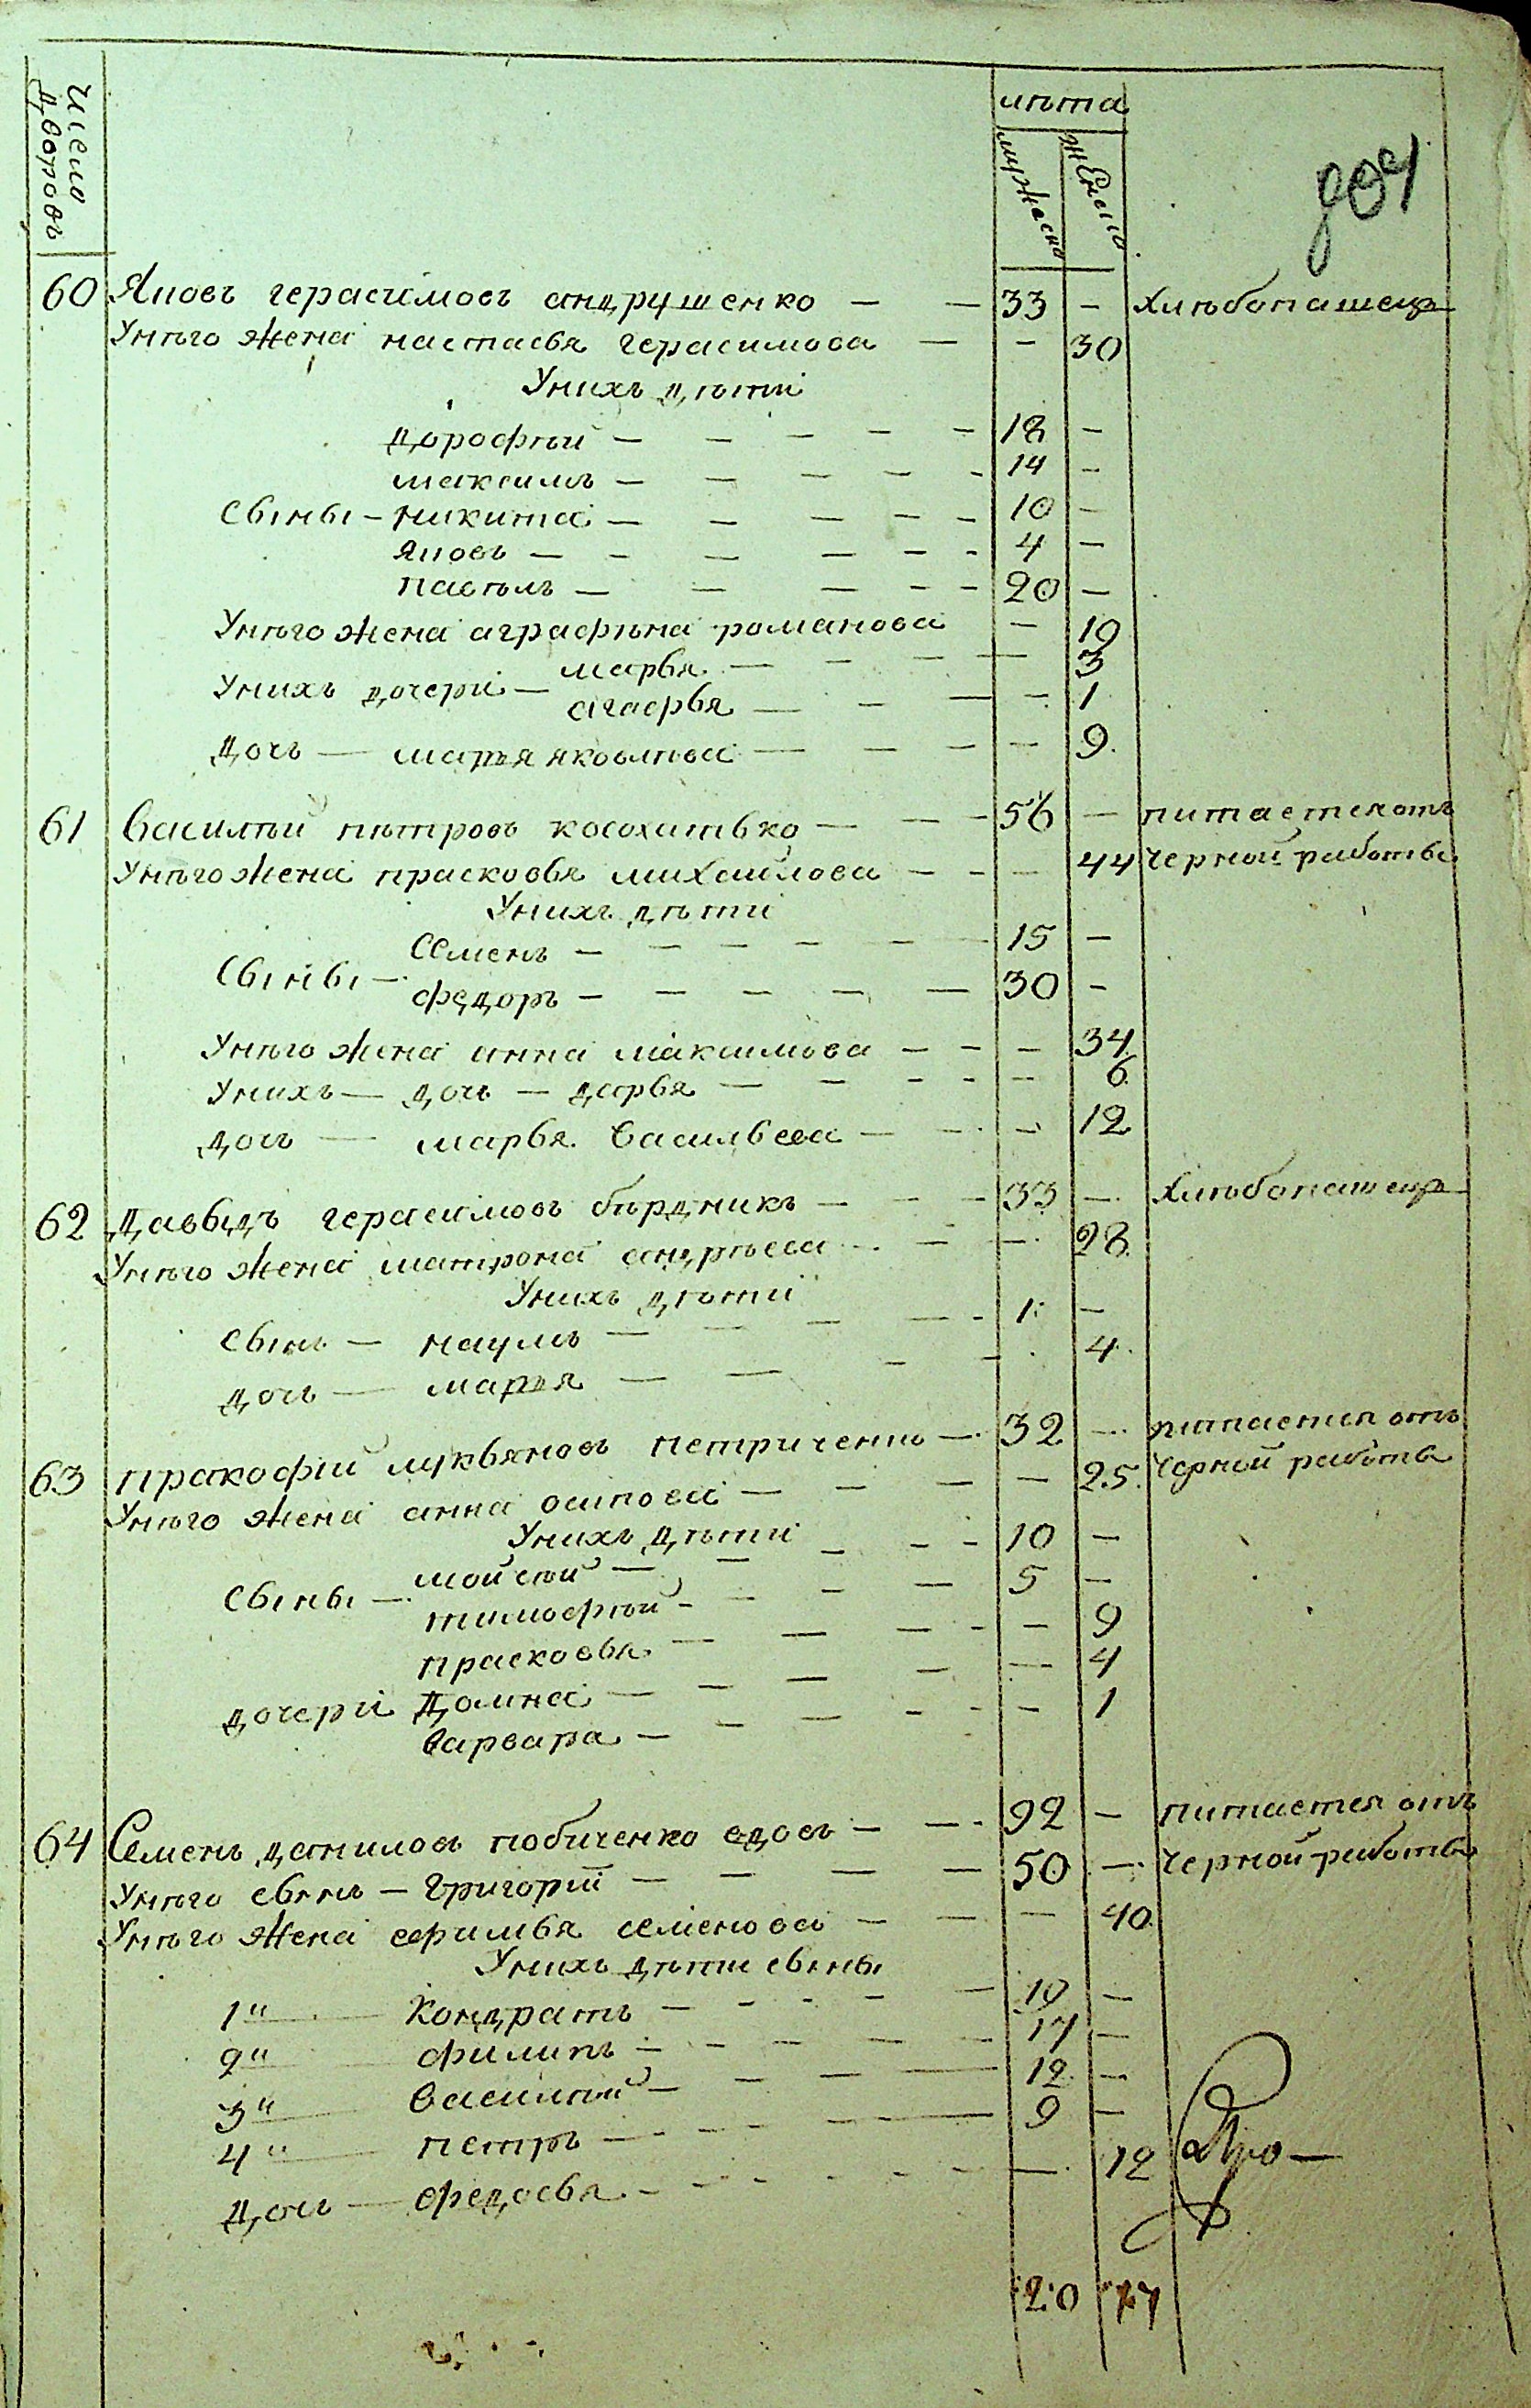 Число дворовъ
лѣта
мужеска
женска
60 Яковъ герасимовъ андрушенко — — 33 — хлѣбопашецъ
Унѣго жена настасья герасимова — — 30
Унихъ дѣти
дорофѣй — — — — — 18 —
максимъ — — — — — 14 —
Сыны — никита — — — — — 10 —
яковъ — — — — — — 4 —
павѣлъ — — — — — 20 —
Унѣго жена аграфѣна романова — 19
марья — — — — 3
Унихъ дочери —
агафья — — — — 1
дочь — марья яковлѣва — — — — 9
61 Василѣй пѣтровъ косохитько — — — 56 — питается отъ
Унѣго жена прасковья михайлова — — — 44 черной работы
Унихъ дѣти
Семенъ — — — — — — 15 —
Сыны —
федоръ — — — — — 30 —
Унѣго жена анна максимова — — — 34
Унихъ — дочь — дарья — — — — — 6
дочь — марья Васильева — — — 12
62 Давыдъ герасимовъ бѣрдникъ — — — 33 — хлѣбопашецъ
Унѣго жена матрона андрѣева — — — 28
Унихъ дѣтиі
Сынъ — наумъ — — — — — 1 —
дочь — марья — — — — 4
63 пракофій лукьяновъ петриченко — 32 — питается отъ
Унѣго жена анна осипова — — — — 25 черной работы
Унихъ дѣти
мойсѣй — — — — — 10 —
Сыны —
тимофѣй — — — — 5 —
прасковья — — — — — 9
дочери домна — — — — — 4
Варвара — — — — — — 1
64 Семенъ даниловъ побиченко вдовъ — — 92 — питается отъ
Унѣго сынъ — Григорій — — — — 50 — черной работы
Унѣго жена ефимья семенова — — — 40
Унихъ дѣти сыны
1" — Кондратъ — — — — — 19 —
2" филипъ — — — — — 17 —
3" — Василѣй — — — — 12 —
4" — петръ — — — — — 9 —
дочь — федосья — — — — — — 12
20 17